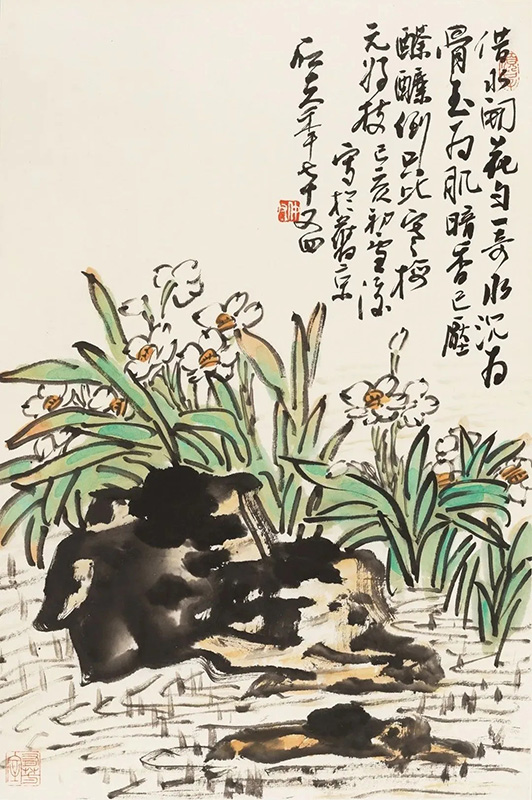 借水開花自一奇水沉为
骨玉为肌暗香已壓
酴醾倒只比寒梅
无好枝己亥初雪後
寫於舊京
年七十又四